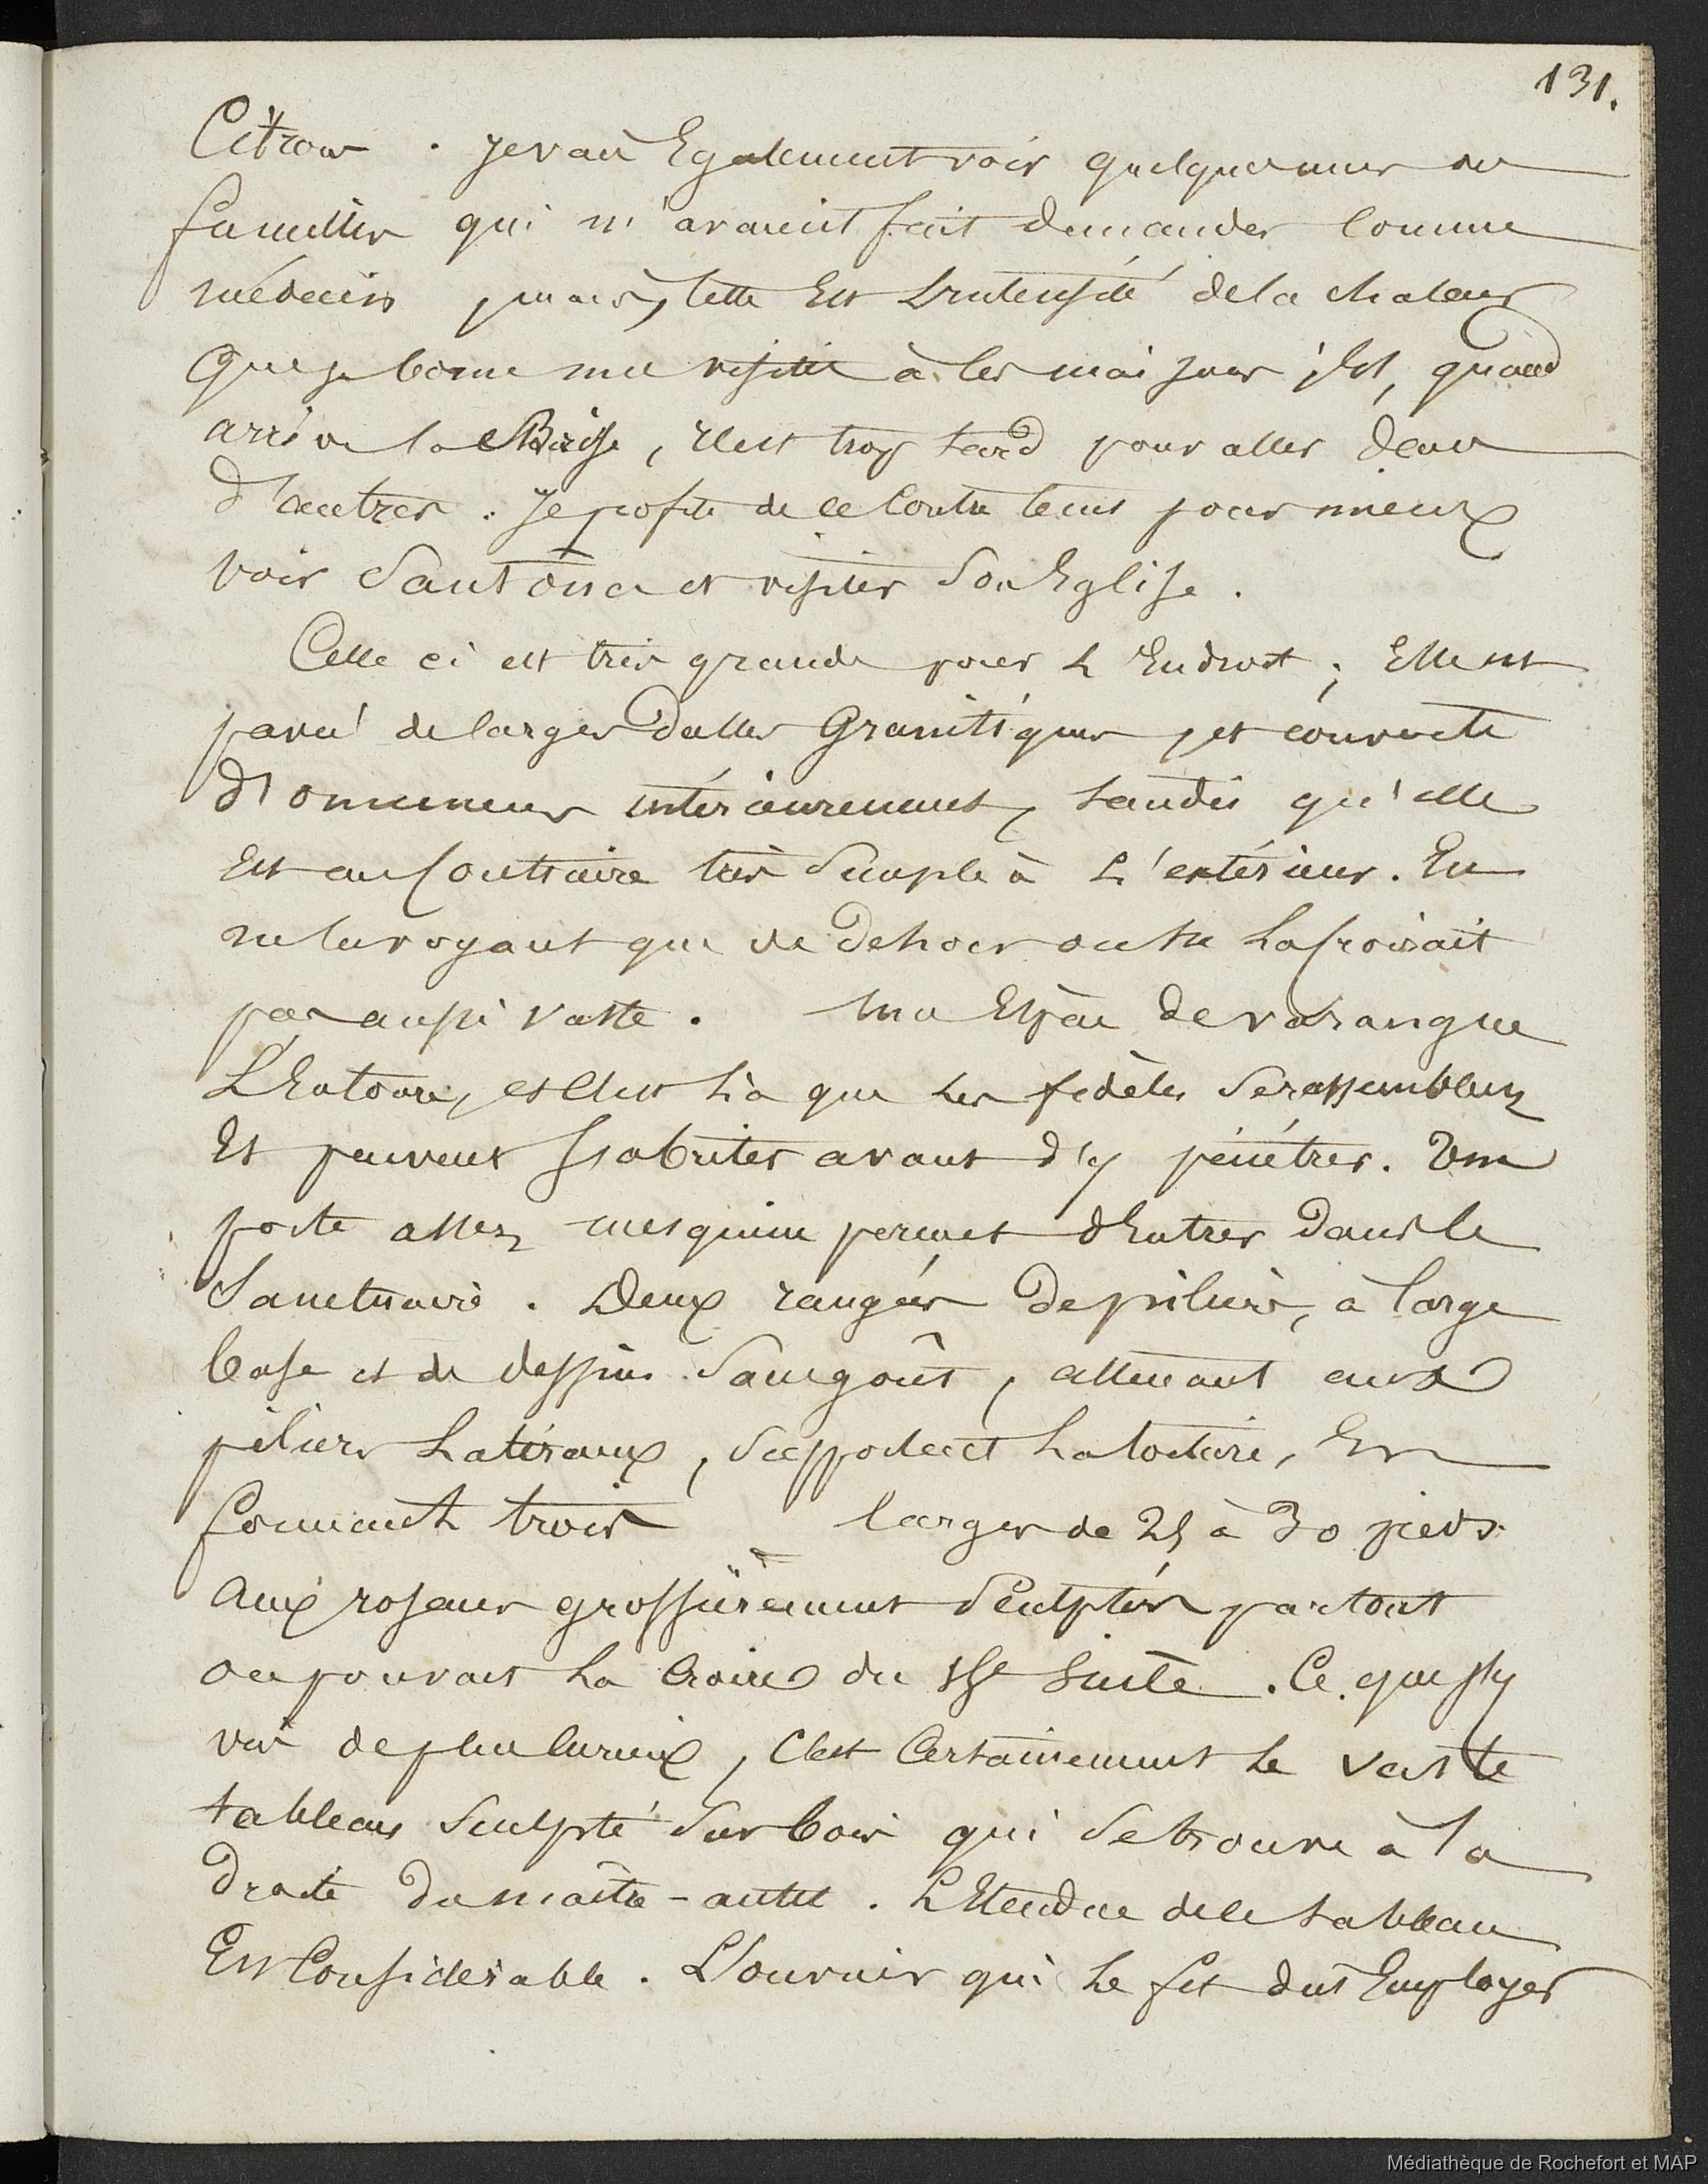 131.
Citron. Je vais Egalement voir quelques unes des
familles qui m'avaient fait demander comme
médecin, mais, telle Est L'intensité de la chaleur
que je borne ma visite à les maisons, Et, quand
arrive la Brise, il est trop tard pour aller dans
d'autres. Je profite de ce Contre tems pour mieux
voir Santona et visiter Son Eglise.
Celle ci est très grande pour L'Endroit; Elle est
pavé de larges Dalles Granitiques, et couverte
d'ornemens intérieurement, tandis qu'elle
Est au Contraire très Simple à L'extérieur. En
ne la voyant que de Dehors on ne La croirait
pas aussi vaste. Une Espèce de varangue
L'Entoure, et C'est Là que Les fidèles Se rassemblent
Et peuvent S'abriter avant d'y pénétrer. Une
porte assez mesquine permet d'Entrer Dans le
Sanctuaire. Deux rangées De piliers, à large
base et de dessins Sans goût, attenant aux
piliers Latéraux, Supportent La toiture, En
formant trois larges de 25 à 30 pieds.
Aux rosaces grossièrement Sculptés partout
on pouvait La Croire du Siècle. Ce que j'y
vis de plus Curieux, C'est Certainement Le vaste
tableau Sculpté Sur bois qui Se trouve à la
Droite Du maître-autel. L'Etendue de ce tableau
Est Considérable. L'ouvrier qui Le fit dut Employer
Médiathèque de Rochefort et MAP